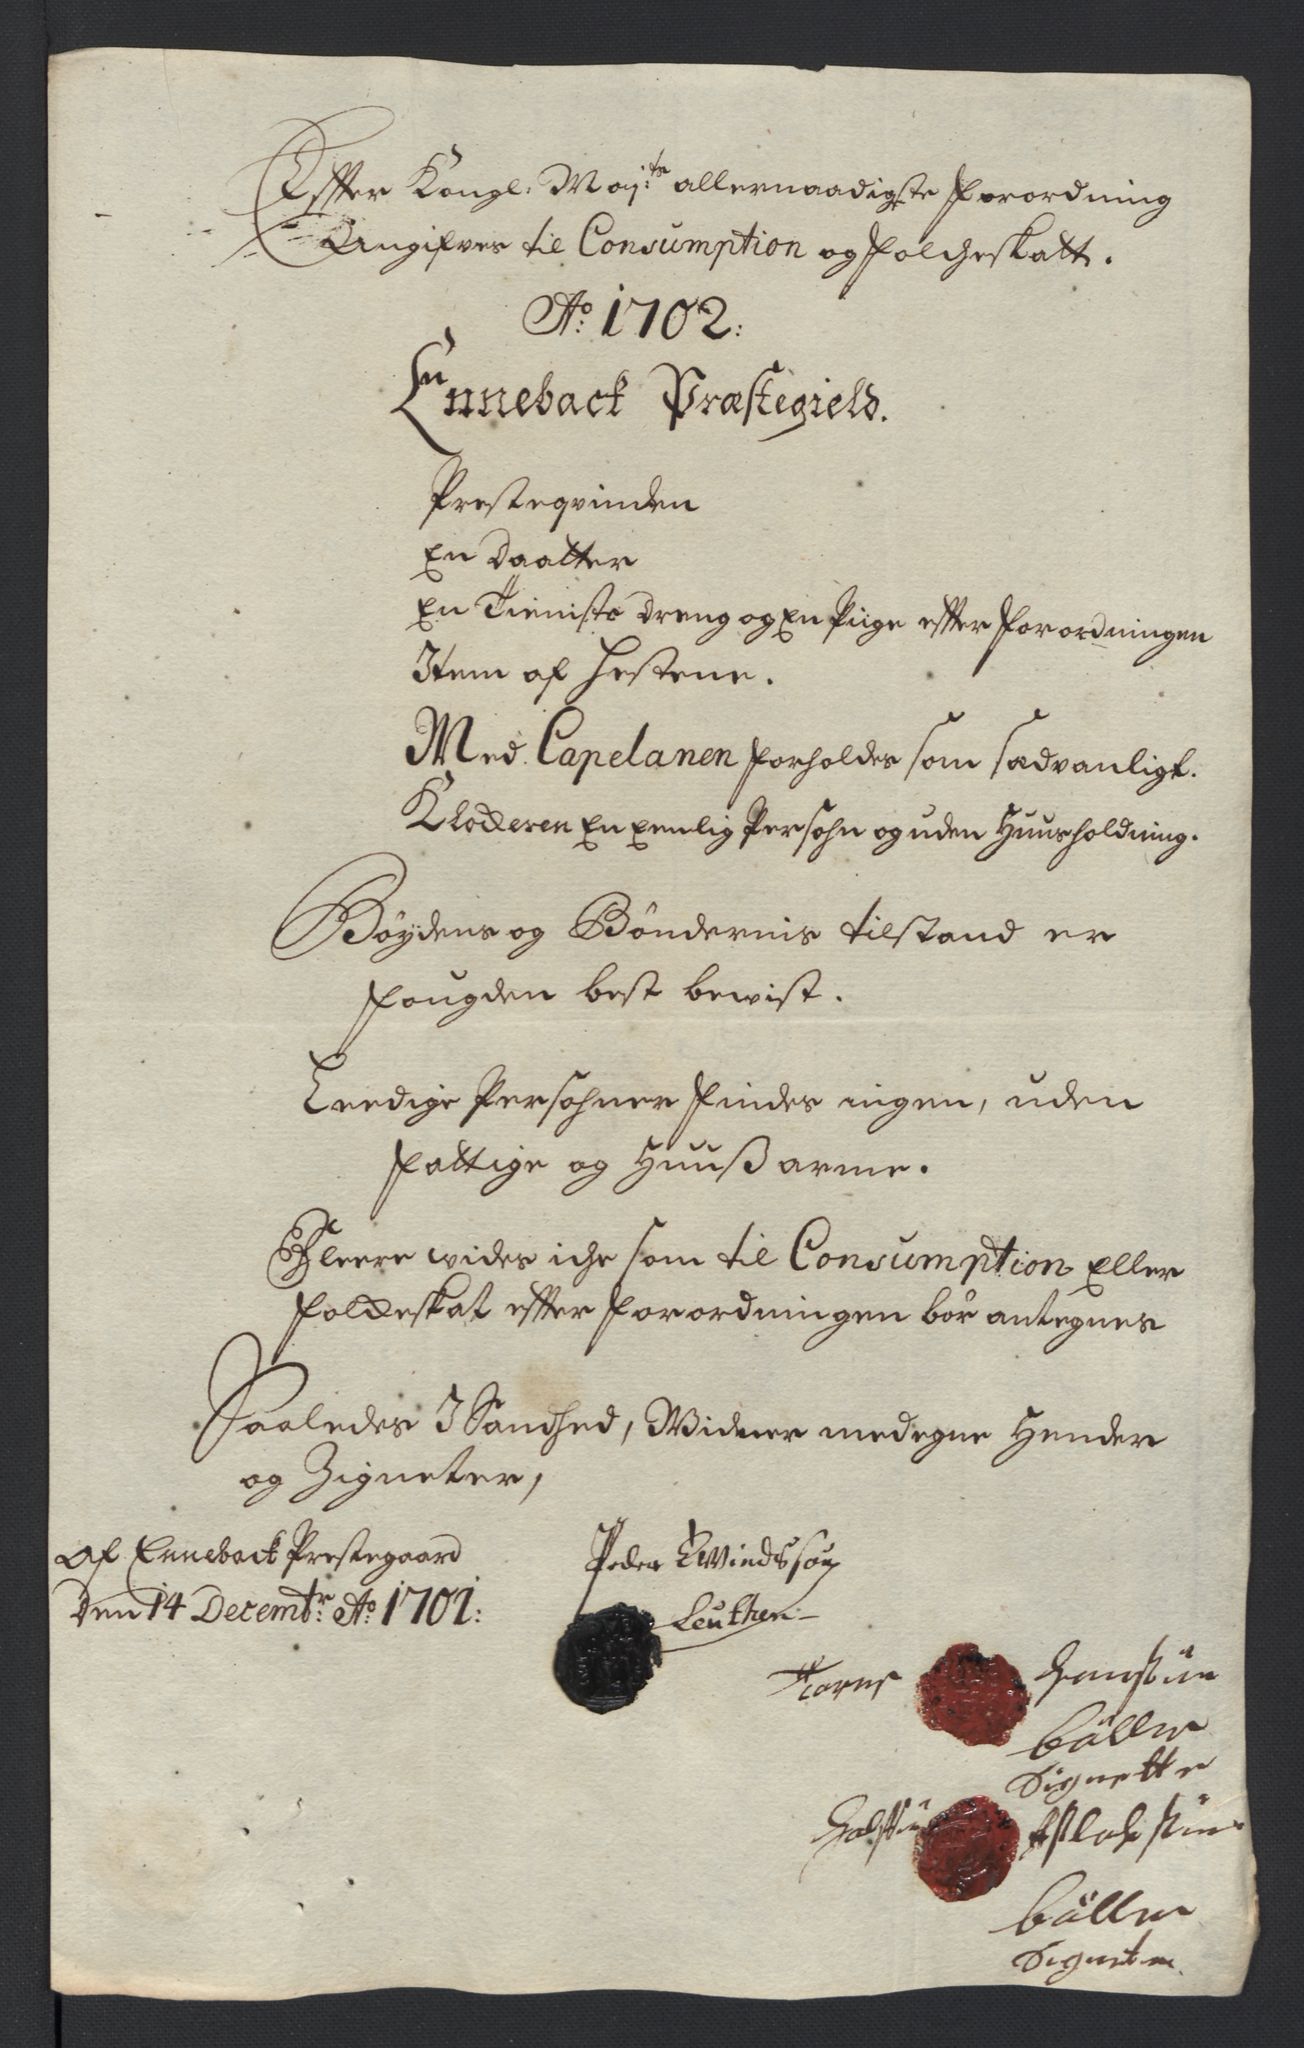 Effter Kongl: May:ts allernaadigste forordning
Angifves til Consumption og folcheskatt.
Ao: 1702:
Enneback Præstegield.
Presteqvinden
En Daatter
En Tieniste dreng og En Piige effter forordningen
Item af Hestene.
Med Capelanen forholdes som sædvanligt.
Klockeren En Eenlig Persohn og uden Huusholdning.
Bøydens og Bøndernis tilstand er
fougden best bewist.
Leedige Persohner findes ingen, uden
fattige og Huusß arme.
Fleere wides iche som til Consumption Eller
folckeskat effter forordningen bør antegnes
Saaledes I Sandhed, Widner med egne Hender
og Zigneter,
Af Enneback Prestegaard
Den 14 Decembr: Ao: 1701:
Peder Ewindssøn
Leuthen
bøller
Signette
bøller